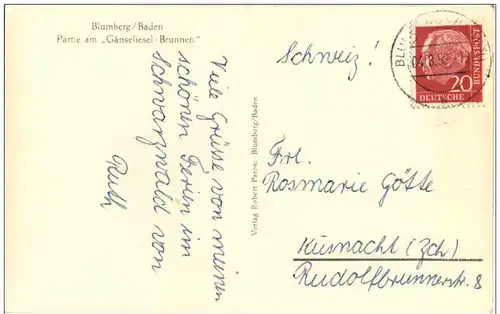 Blumberg/Baden
Partie am „Gänseliesel-Brunnen"
Viele Grüsse von meinen
schönen Ferien im
Schwarzwald von
Ruth
Verlag Robert Parow, Blumberg/Baden
Schweiz!
DEUTSCHE
BUNDESPOST
20
Frl.
Rosmarie Götte
Küsnacht (Zch)
Rudolfbrunnerstr. 8